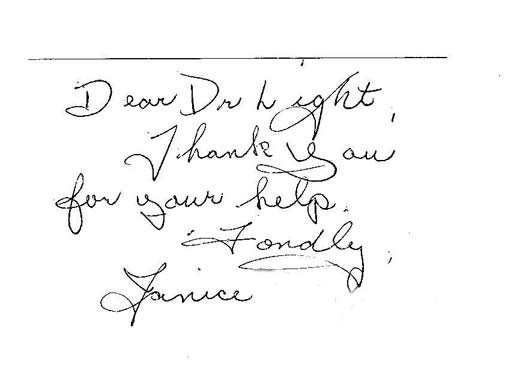 Dear Dr Light,
Thank you
for your help.
Fondly,
Janice